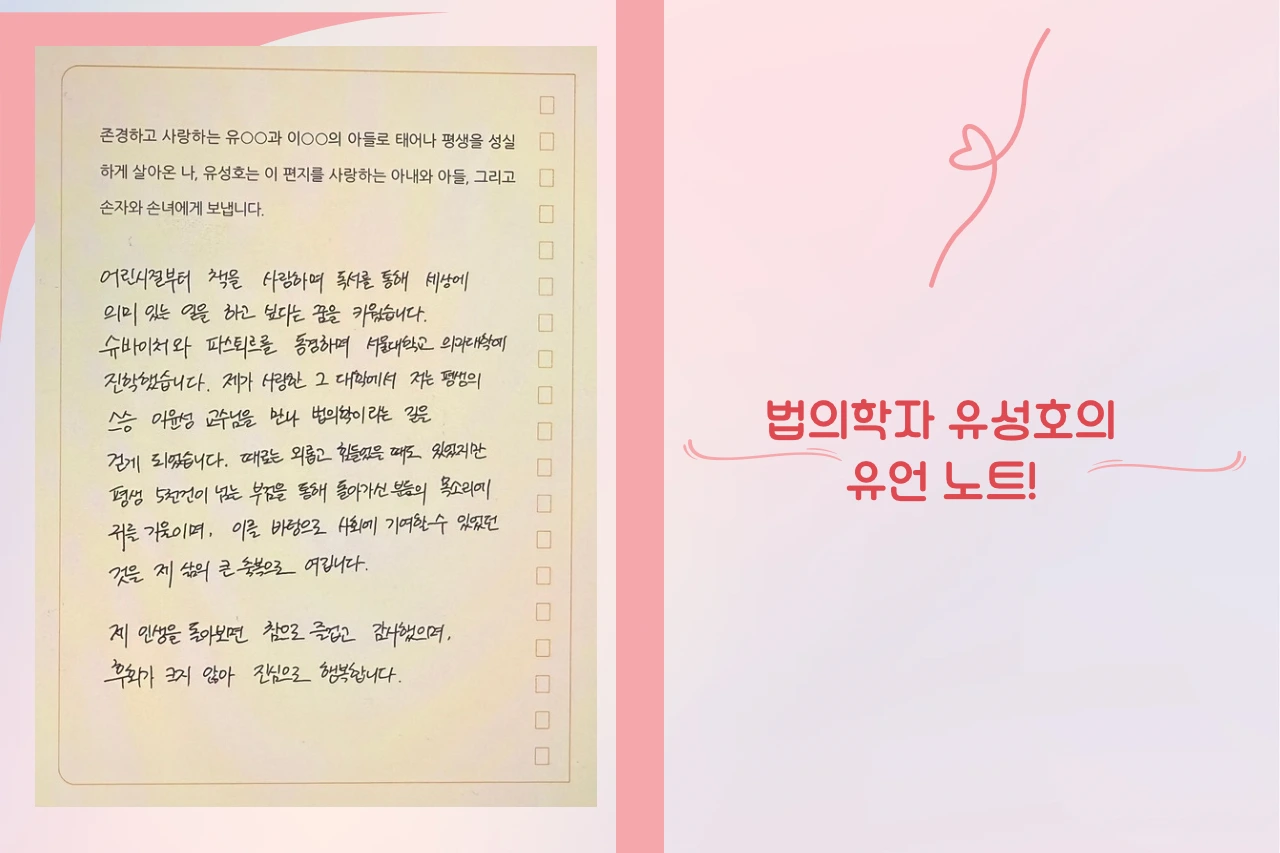 존경하고 사랑하는 유○○과 이○○의 아들로 태어나 평생을 성실
하게 살아온 나, 유성호는 이 편지를 사랑하는 아내와 아들, 그리고
손자와 손녀에게 보냅니다.
어린시절부터 책을 사랑하며 독서를 통해 세상에
의미 있는 일을 하고 싶다는 꿈을 키웠습니다.
슈바이처와 파스퇴르를 동경하며 서울대학교 의과대학에
진학했습니다. 제가 사랑한 그 대학에서 저는 평생의
스승 이윤성 교수님을 만나 법의학이라는 길을
걷게 되었습니다. 때로는 외롭고 힘들었을 때도 있었지만
평생 5천건이 넘는 부검을 통해 돌아가신 분들의 목소리에
귀를 기울이며, 이를 바탕으로 사회에 기여할 수 있었던
것을 제 삶의 큰 축복으로 여깁니다.
제 인생을 돌아보면 참으로 즐겁고 감사했으며,
후회가 크지 않아 진심으로 행복합니다.
법의학자 유성호의
유언 노트!